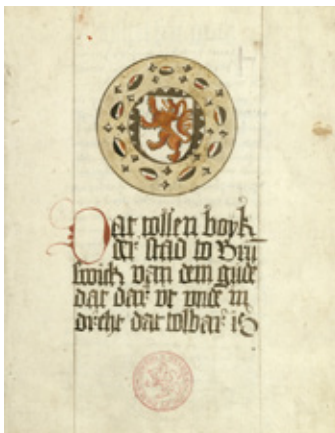 Dat tollen boyk
der stad to Bru
swick van dem gude
dat dar vt vnde in
dreht dat tolbar is